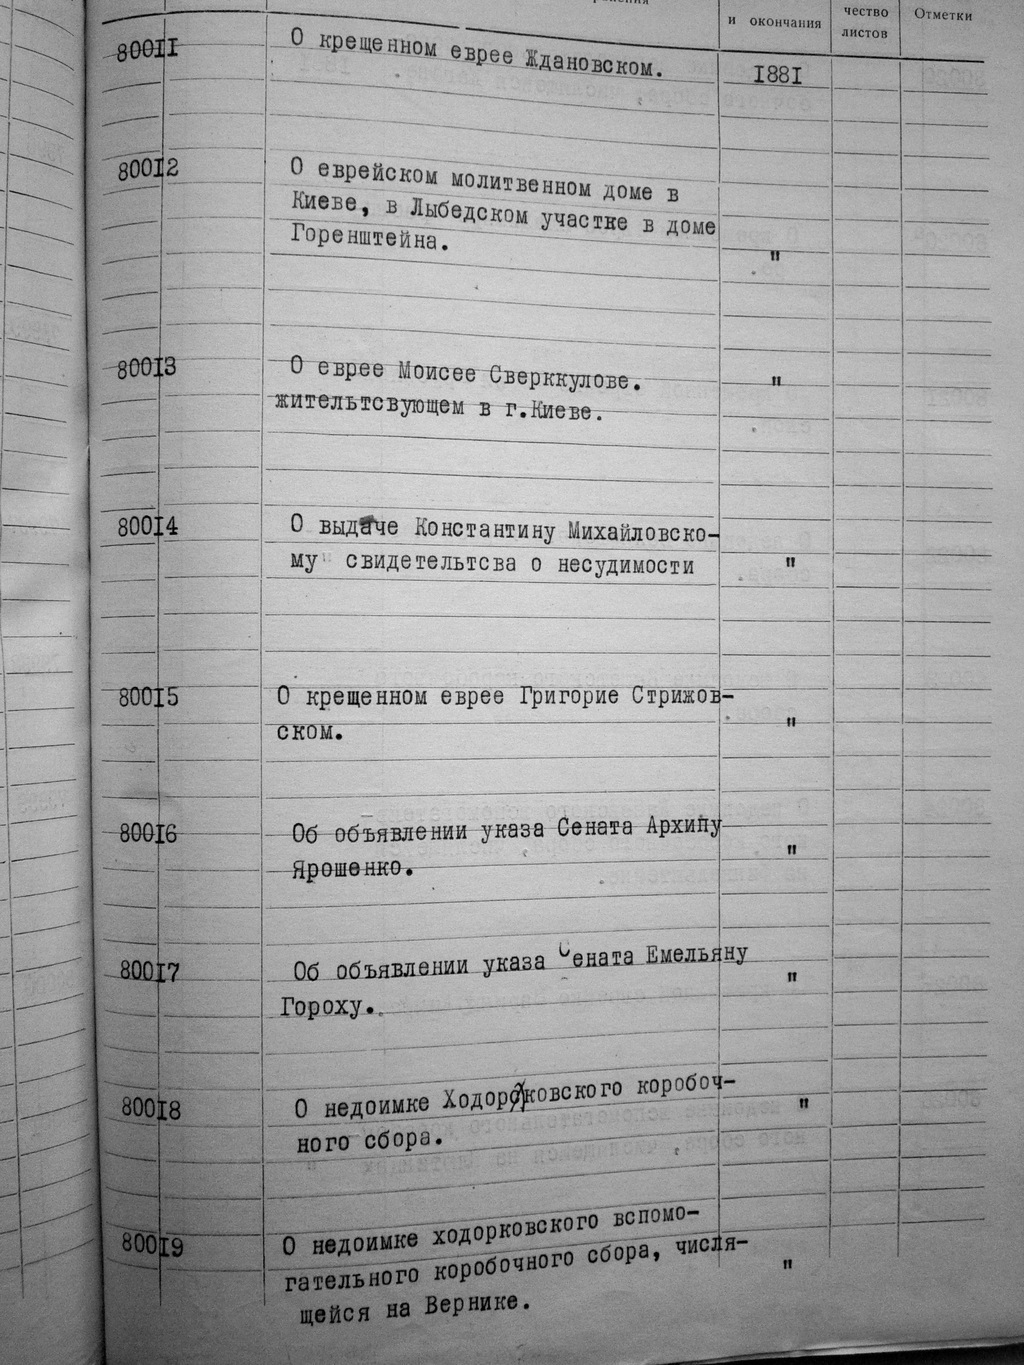 и окончания
чество
листов
Отметки
80011
О крещенном еврее Ждановском.
1881
80012
О еврейском молитвенном доме в
Киеве, в Лыбедском участке в доме
Горенштейна.
"
80013
О еврее Моисее Сверккулове.
"
жительтсвующем в г.Киеве.
80014
О выдаче Константину Михайловско-
му" свидетельтсва о несудимости
"
80015
О крещенном еврее Григорие Стрижов-
ском.
"
80016
Об объявлении указа Сената Архипу
Ярошенко.
"
80017
Об объявлении указа Сената Емельяну
Гороху.
"
80018
О недоимке Ходорковского коробоч-
ного сбора.
"
80019
О недоимке ходорковского вспомо-
гательного коробочного сбора, числя-
щейся на Вернике.
"